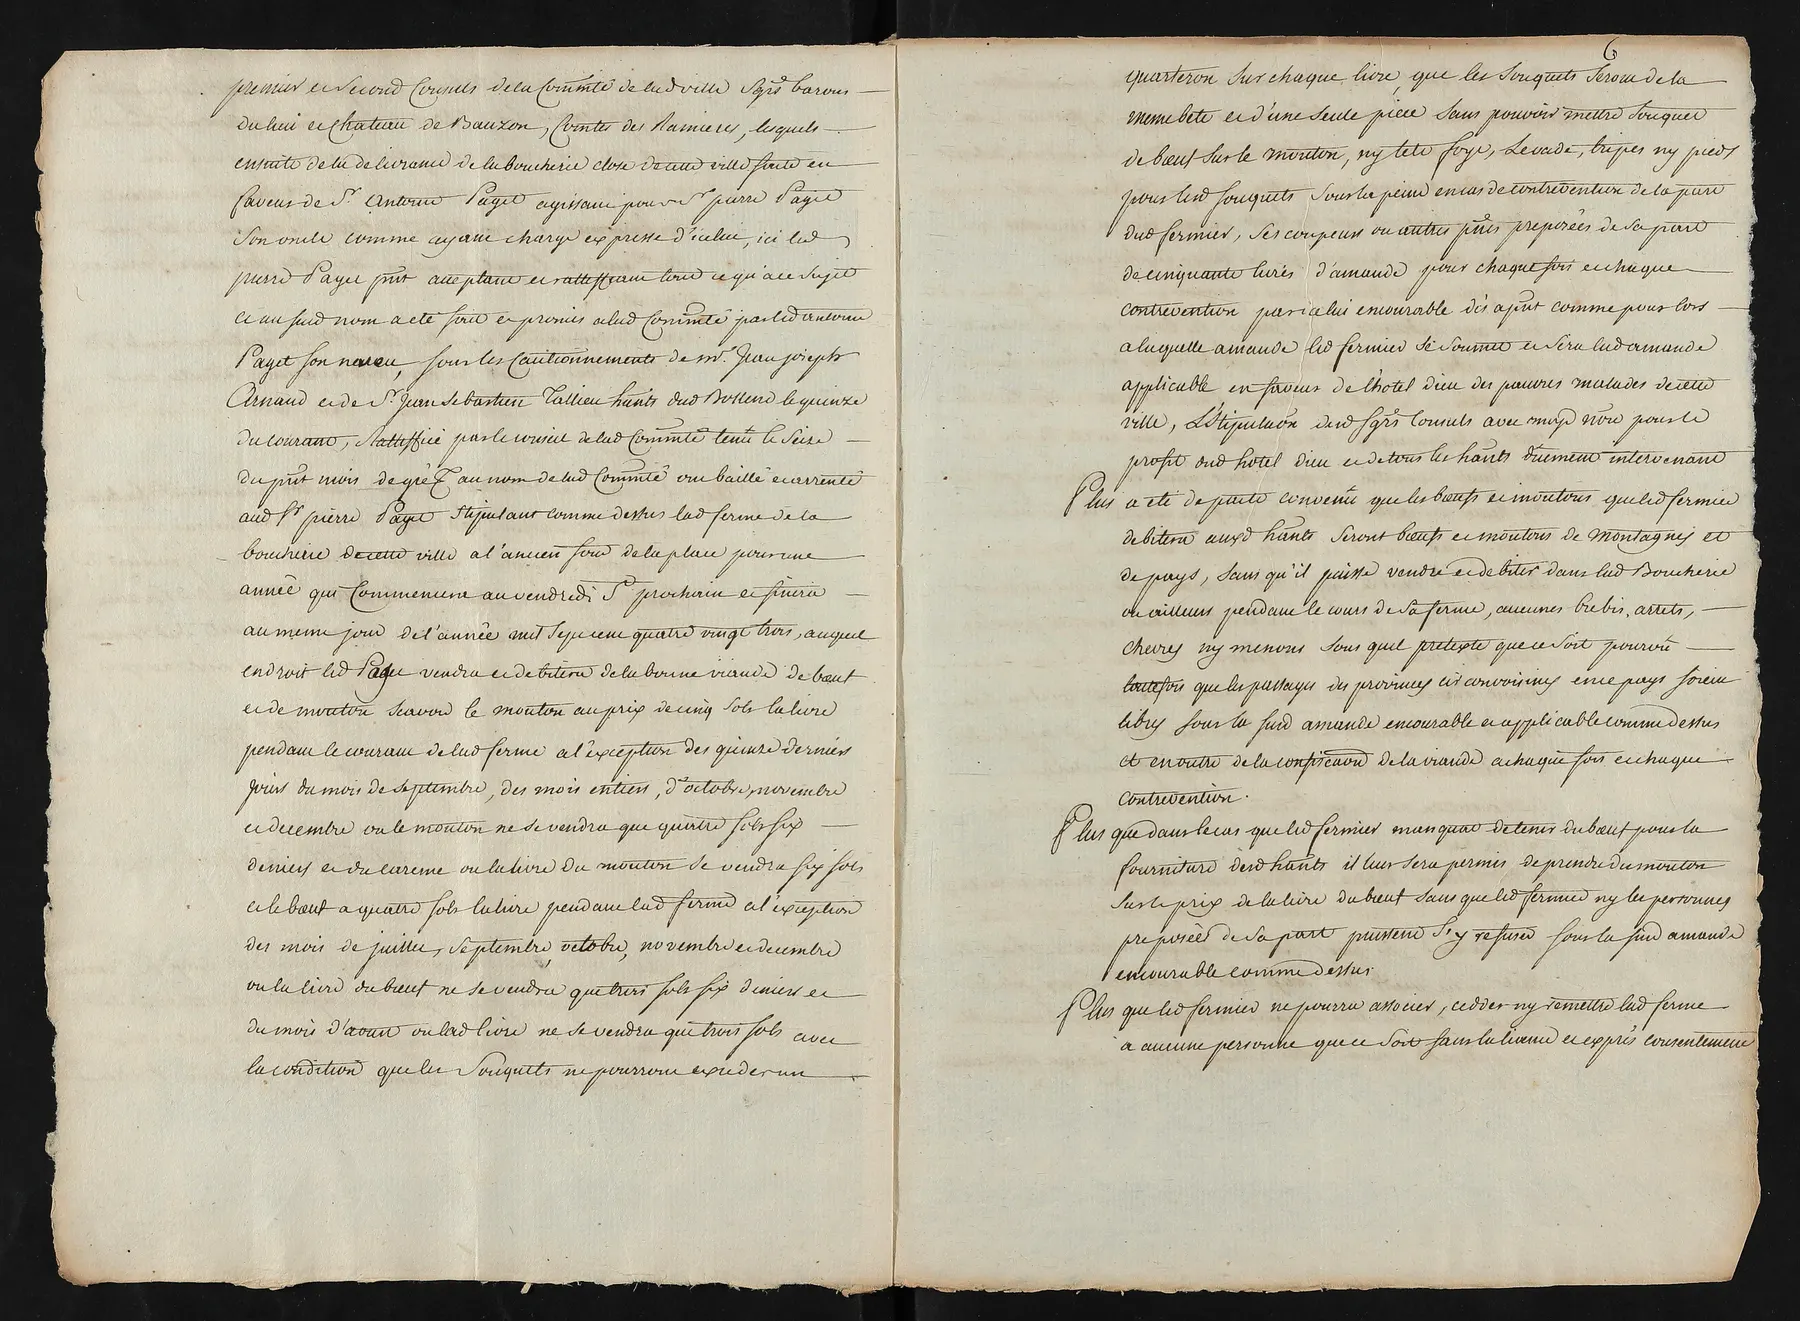 premier et second Consuls de la Comm̃té de lad ville Sgrs barons
du lieu et Chateau de Bauzon, Comtes des Ramieres, lesquels
ensuite de la delivrance de la boucherie close de cette ville faite en
faveur de Sr. Antoine Paget agissant pour Sr pierre Paget
son oncle comme ayant charge expresse d'icelui, ici led
pierre Paget pñt acceptant et rattiffiant tout ce qu'a ce sujet
et au susd nom a eté fait et promis a lad Comm̃té par led antoine
Paget son neveu, sous les Cautionnements de mr. Jean joseph
Arnaud et de Sr. Jean Sebastien Tallieu hãnts dud Bollene le quinze
du courant, Rattiffié par le conseil de lad Comm̃té tenu le Seize
du pñt mois de grè au nom de lad Comm̃té ont baillé et arrenté
aud Sr pierre Paget stipulant comme dessus lad ferme de la
boucherie de cette ville a l'ancien four de la place pour une
année qui Commencera au vendredi St prochain et finira
au meme jour de l'année mil sept cent quatre vingt trois, auquel
endroit led Paget vendra et debitera de la bonne viande de bœuf
et de mouton scavoir le mouton au prix de cinq sols la livre
pendant le courant de lad ferme a l'exception des quinze derniers
jours du mois de septembre, des mois entiers, d'octobre, novembre
et decembre ou le mouton ne se vendra que quatre sols six
deniers et du careme ou la livre du mouton se vendra six sols
et le bœuf a quatre sols la livre pendant lad ferme a l'exception
des mois de juillet, septembre, octobre, novembre et decembre
ou la livre du bœuf ne se vendra que trois sols six deniers et
du mois d'aout ou lad livre ne se vendra que trois sols avec
la condition que les Souquets ne pourront exceder un
6
quarteron sur chaque livre, que les souquets seront de la
meme bete et d'une seule piece sans pouvoir mettre souquet
de bœuf sur le mouton, ny tete foye, Levade, tripes ny pieds
pour lesd souquets sous la peine en cas de contrevention de la part
dud fermier, ses coupeurs ou autres pñes preposées de sa part
de cinquante livres d'amande pour chaque fois et chaque
contrevention par icelui encourable dès apñt comme pour lors
a laquelle amande led fermier se soumet et sera lad amande
applicable en faveur de l'hotel dieu des pauvres malades de cette
ville, L'Stipulaõn desd Sgrs Consuls avec moyd nõre pour le
profit dud hotel dieu et de tous les hãnts düement intervenant
Plus a eté de pacte convenu que les bœufs et moutons que led fermier
debitera auxd hãnts seront bœufs et moutons de montagnes et
de pays, sans qu'il puisse vendre et debiter dans lad Boucherie
ou ailleurs pendant le cours de sa ferme, aucunes brebis, arets,
chevres ny menons sous quel pretexte que ce soit pourvû
toutefois que les passages des provinces circonvoisines en ce pays soient
libres sous la susd amande encourable et applicable comme dessus
et en outre de la confiscaõn de la viande a chaque fois et chaque
contrevention.
Plus que dans le cas que led fermier manquat de tenir du bœuf pour la
fourniture desd hãnts il leur sera permis de prendre du mouton
sur le prix de la livre du bœuf sans que led fermier ny les personnes
preposées de sa part puissent s'y refuser sous la susd amande
encourable comme dessus.
Plus que led fermier ne pourra associer, cedder ny remettre lad ferme
a aucune personne que ce soit sans la licence et exprès consentement